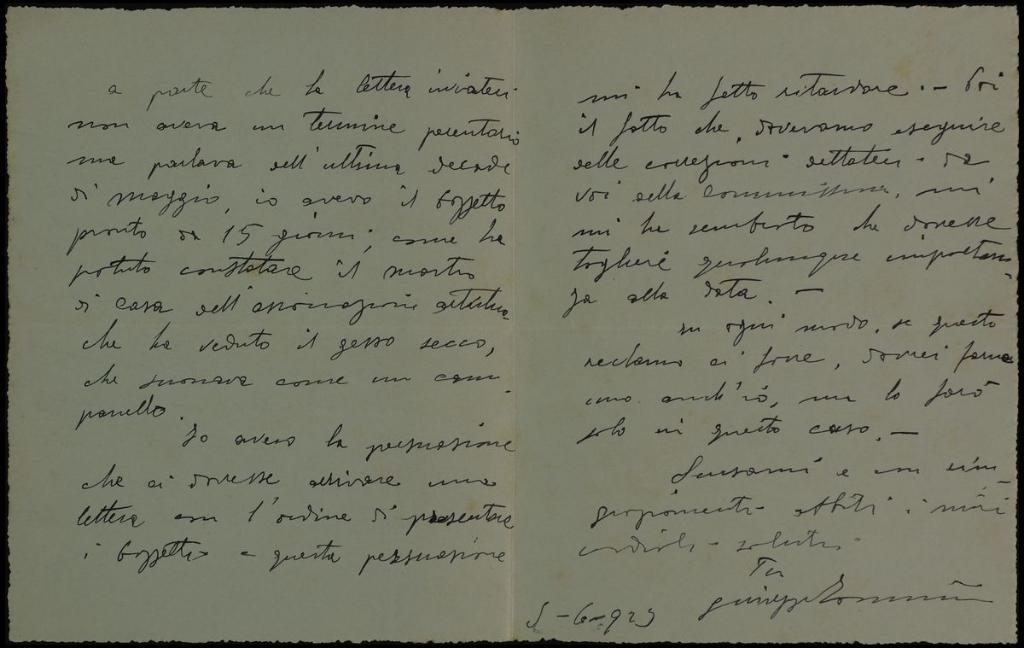 a parte che la lettera inviatami
non aveva un termine perentorio
ma parlava dell'ultima decade
di maggio, io avevo il bozzetto
pronto da 15 giorni, come ha
potuto constatare il mastro
di casa dell'associazione artistica
che ha veduto il gesso secco,
che suonava come un cam-
panello.
Io avevo la persuasione
che ci dovesse arrivare una
lettera con l'ordine di presentare
i bozzetti e questa persuasione
mi ha fatto ritardare. — Poi
il fatto che, dovevamo eseguire
delle correzioni dettateci da
voi della commissione,
mi ha sembrato che dovesse
togliere qualunque importan-
za alla data. —
In ogni modo, se questo
reclamo ci fosse, dovrei farne
uno anch'io, ma lo farò
solo in questo caso. —
Scusami e con
ringraziamenti abbiti i miei
cordiali saluti
Tu
Giuseppe
5-6-923